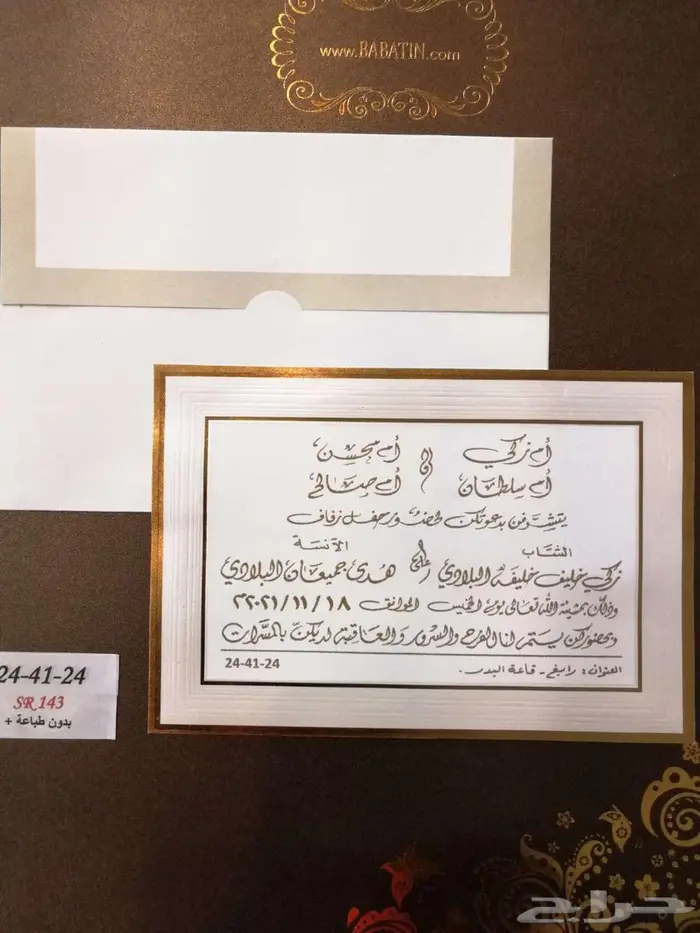 www.BABATIN.com
أم زكي أم محسن
أم سلطان أم صالح
يتشرفن بدعوتكن لحضور حفل زفاف
الشاب الآنسة
زكي خليف خليفة البلادي على هدى جميعان البلادي
وذلك بمشيئة الله تعالى يوم الخميس الموافق ٢٠٢١/١١/١٨م
وبحضوركن يتم لنا الفرح والسرور والعاقبة لديكن بالمسرات
العنوان: رابغ - قاعة البدر.
24-41-24
24-41-24
SR 143
بدون طباعة +
حراج